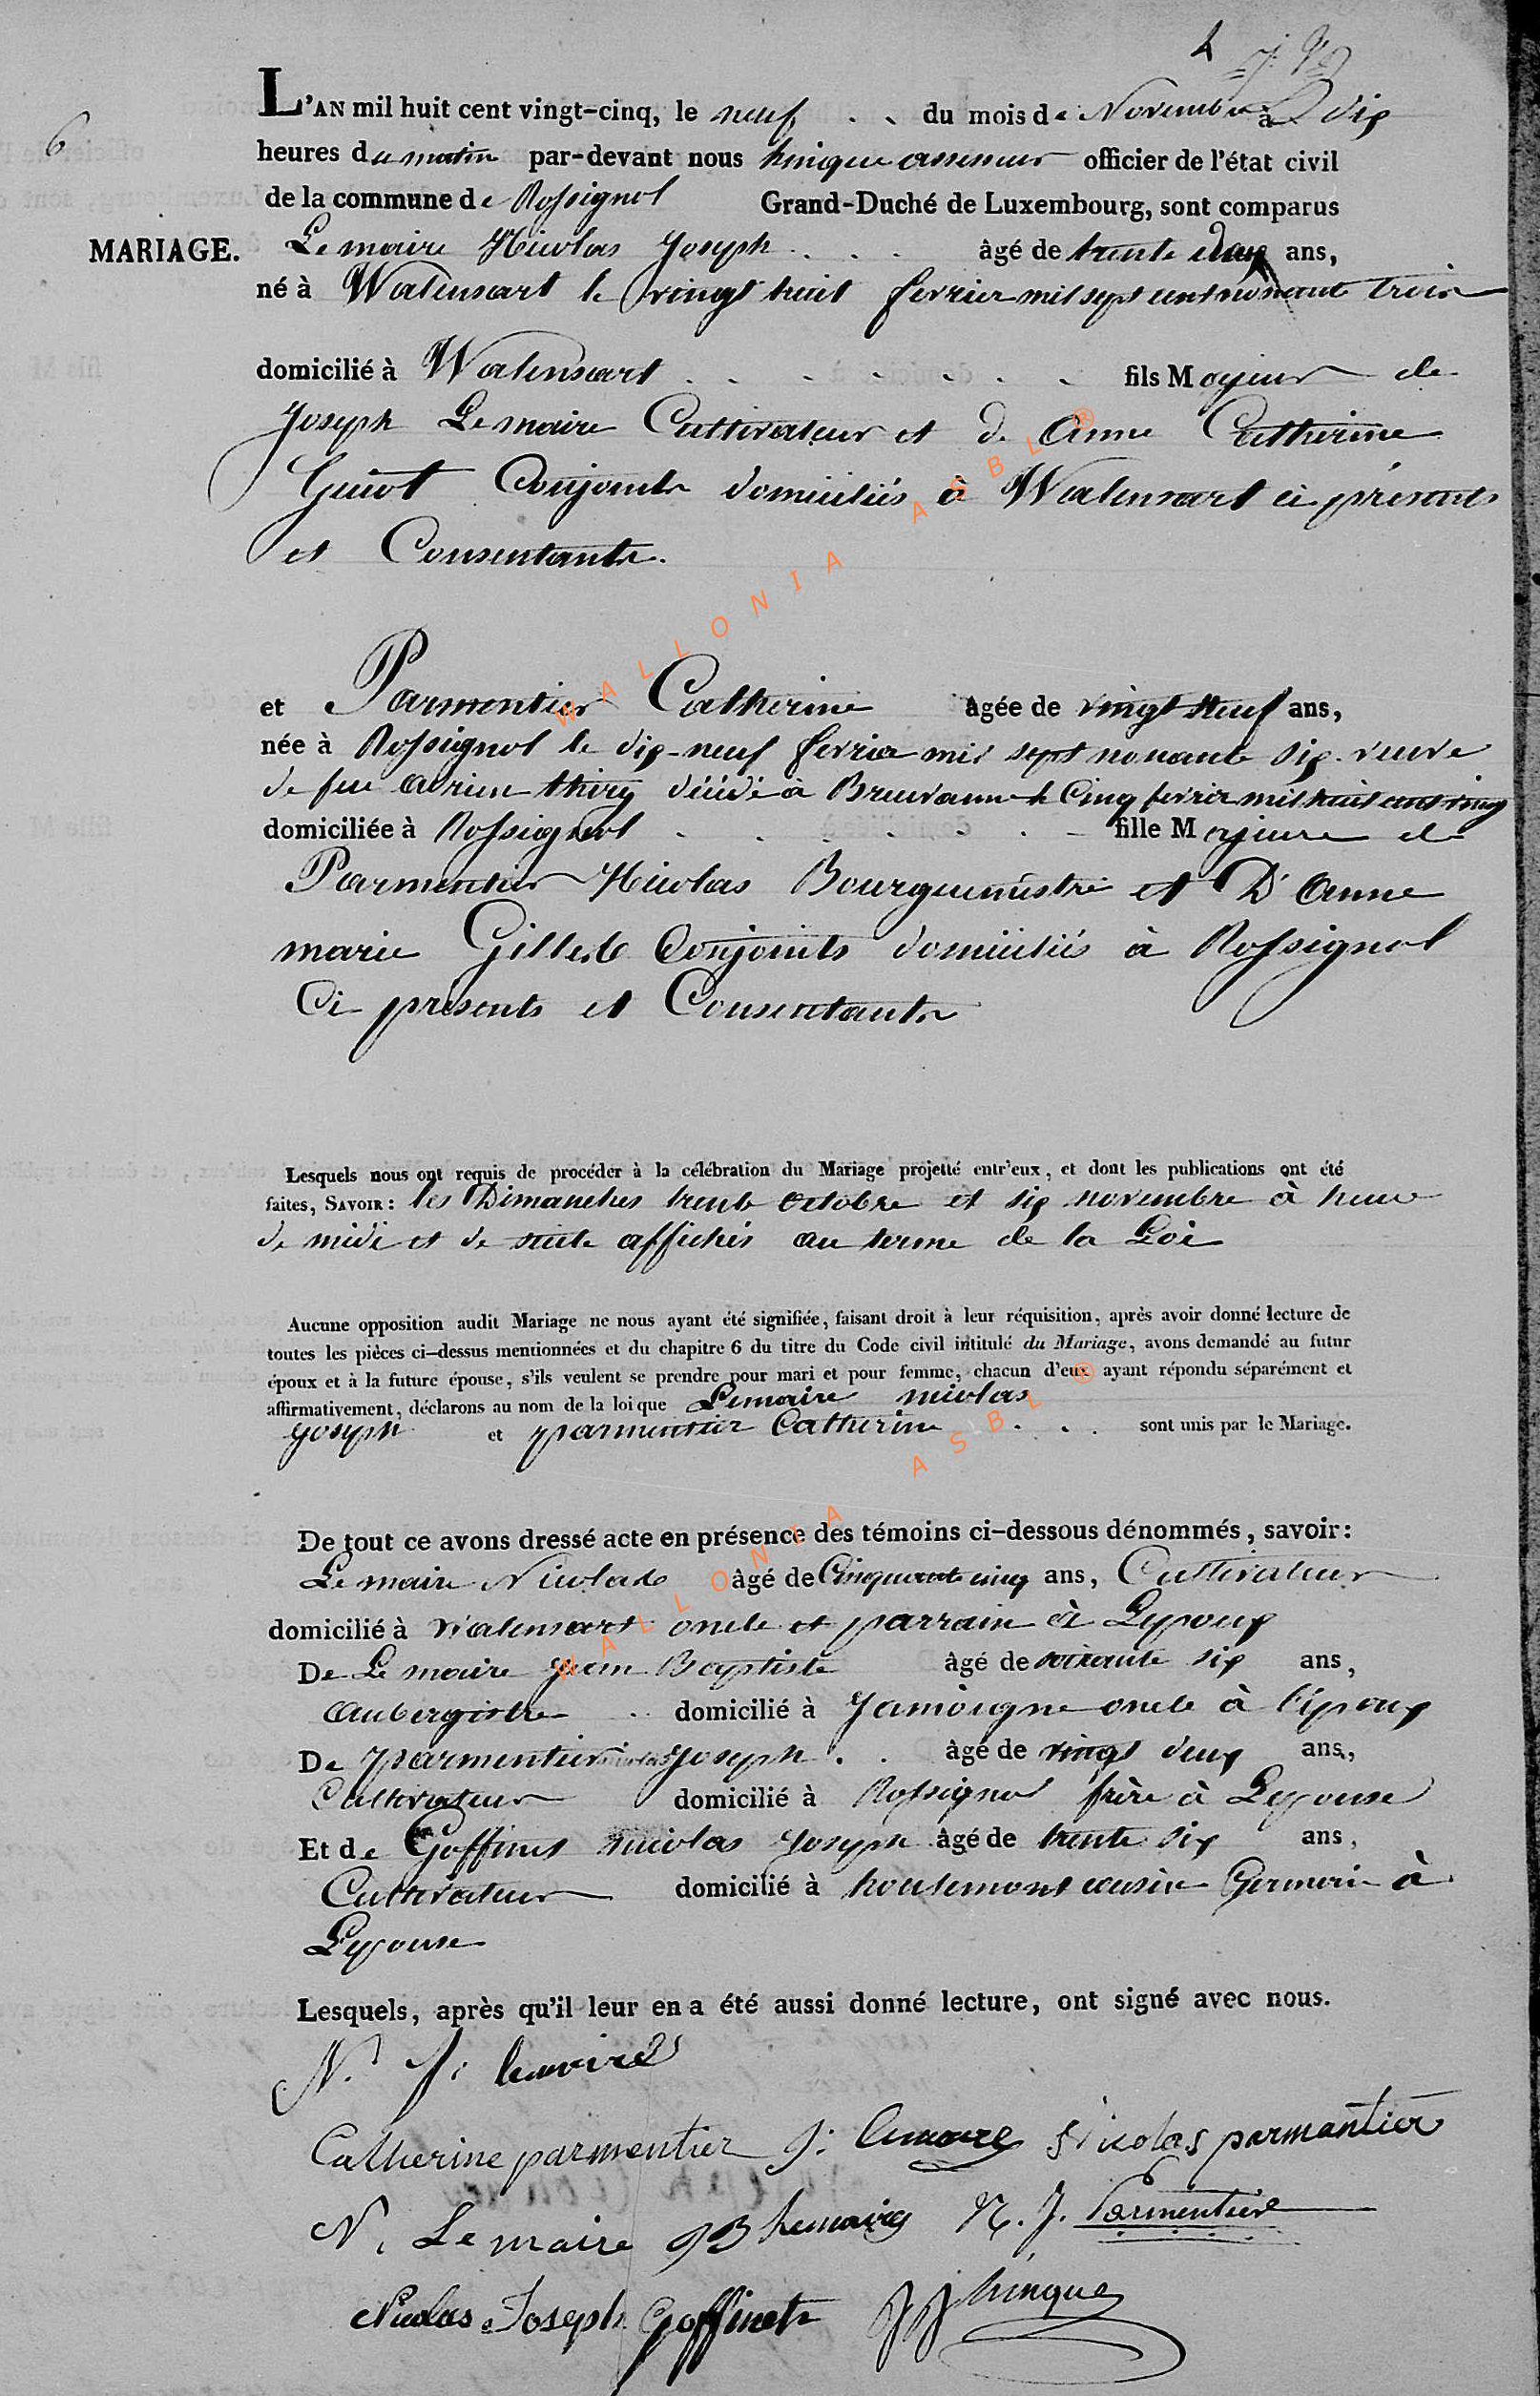 6
L'AN mil huit cent vingt-cinq, le neuf . . du mois de Novembre à dix
heures du matin par-devant nous hinque assesseur officier de l'état civil
de la commune de Rossignol Grand-Duché de Luxembourg, sont comparus
MARIAGE. Lemaire Nicolas Joseph . . . âgé de trente deux ans,
né à Walensart le vingt huit fevrier mil sept cent nonante trois
domicilié à Walensart . . . . . . fils Majeur de
Joseph Lemaire Cultivateur et de Anne Catherine
Guiot Conjoints domiciliés à Walensart ci présents
et Consentants.
et Parmentier Catherine âgée de vingt neuf ans,
née à Rossignol le dix-neuf fevrier mil sept nonante six veuve
de feu adrien thiry décédé à Breuvanne le Cinq fevrier mil huit cent vingt
domiciliée à Rossignol . . . . . . fille Majeure de
Parmentier Nicolas Bourguemestre et D'Anne
marie Gillet Conjoints domiciliés à Rossignol
Ci présents et Consentants
Lesquels nous ont requis de procéder à la célébration du Mariage projetté entr'eux, et dont les publications ont été
faites, SAVOIR: les Dimanches trente octobre et six novembre à heure
de midi et de suite affichés au terme de la Loi
Aucune opposition audit Mariage ne nous ayant été signifiée, faisant droit à leur réquisition, après avoir donné lecture de
toutes les pièces ci-dessus mentionnées et du chapitre 6 du titre du Code civil intitulé du Mariage, avons demandé au futur
époux et à la future épouse, s'ils veulent se prendre pour mari et pour femme, chacun d'eux ayant répondu séparément et
affirmativement, déclarons au nom de la loi que Lemaire nicolas
joseph et parmentier Catherine . . . sont unis par le Mariage.
De tout ce avons dressé acte en présence des témoins ci-dessous dénommés, savoir:
Lemaire Nicolas âgé de Cinquante cinq ans, Cultivateur
domicilié à Walensart oncle et parrain à Lepoux
De Lemaire jean Baptiste âgé de soixante six ans,
Aubergiste . . domicilié à Jamoigne oncle à l'époux
De parmentier nicolas Joseph . . âgé de vingt deux ans,
Cultivateur domicilié à Rossignol frère à Lepouse
Et de Goffinet nicolas Joseph âgé de trente six ans,
Cultivateur domicilié à houdemont cousin Germain à
Lepouse
Lesquels, après qu'il leur en a été aussi donné lecture, ont signé avec nous.
N. J: lemaire
Catherine parmentier J: lemaire Nicolas parmantier
N. Lemaire JB Lemaire N. J. Parmentier
Nicolas Joseph Goffinet JJ hinque
WALLONIA ASBL ®
WALLONIA ASBL ®